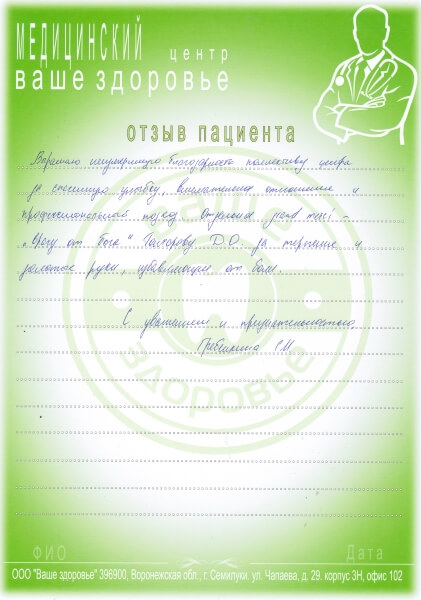 МЕДИЦИНСКИЙ центр
ваше здоровье
отзыв пациента
Выражаю неизмеримую благодарность коллективу центра
за улыбку, внимательное отношение и
профессиональный подход. Отдельный
"Врачу от бога" Д.О. за терпение и
золотые руки, избавляющие от боли.
С уважением и признательностью,
С.И.
ЗДОРОВЬЕ
ФИО Дата
ООО "Ваше здоровье" 396900, Воронежская обл., г. Семилуки, ул. Чапаева, д. 29. корпус 3Н, офис 102